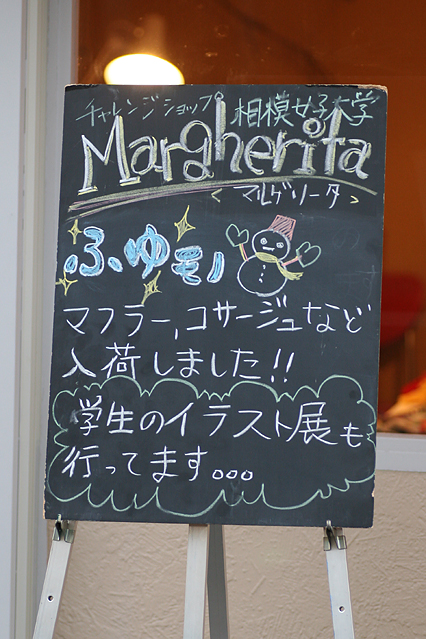 チャレンジショップ 相模女子大学
Margherita
<マルゲリータ>
ふゆモノ
マフラー,コサージュなど
入荷しました!!
学生のイラスト展も
行ってます。。。